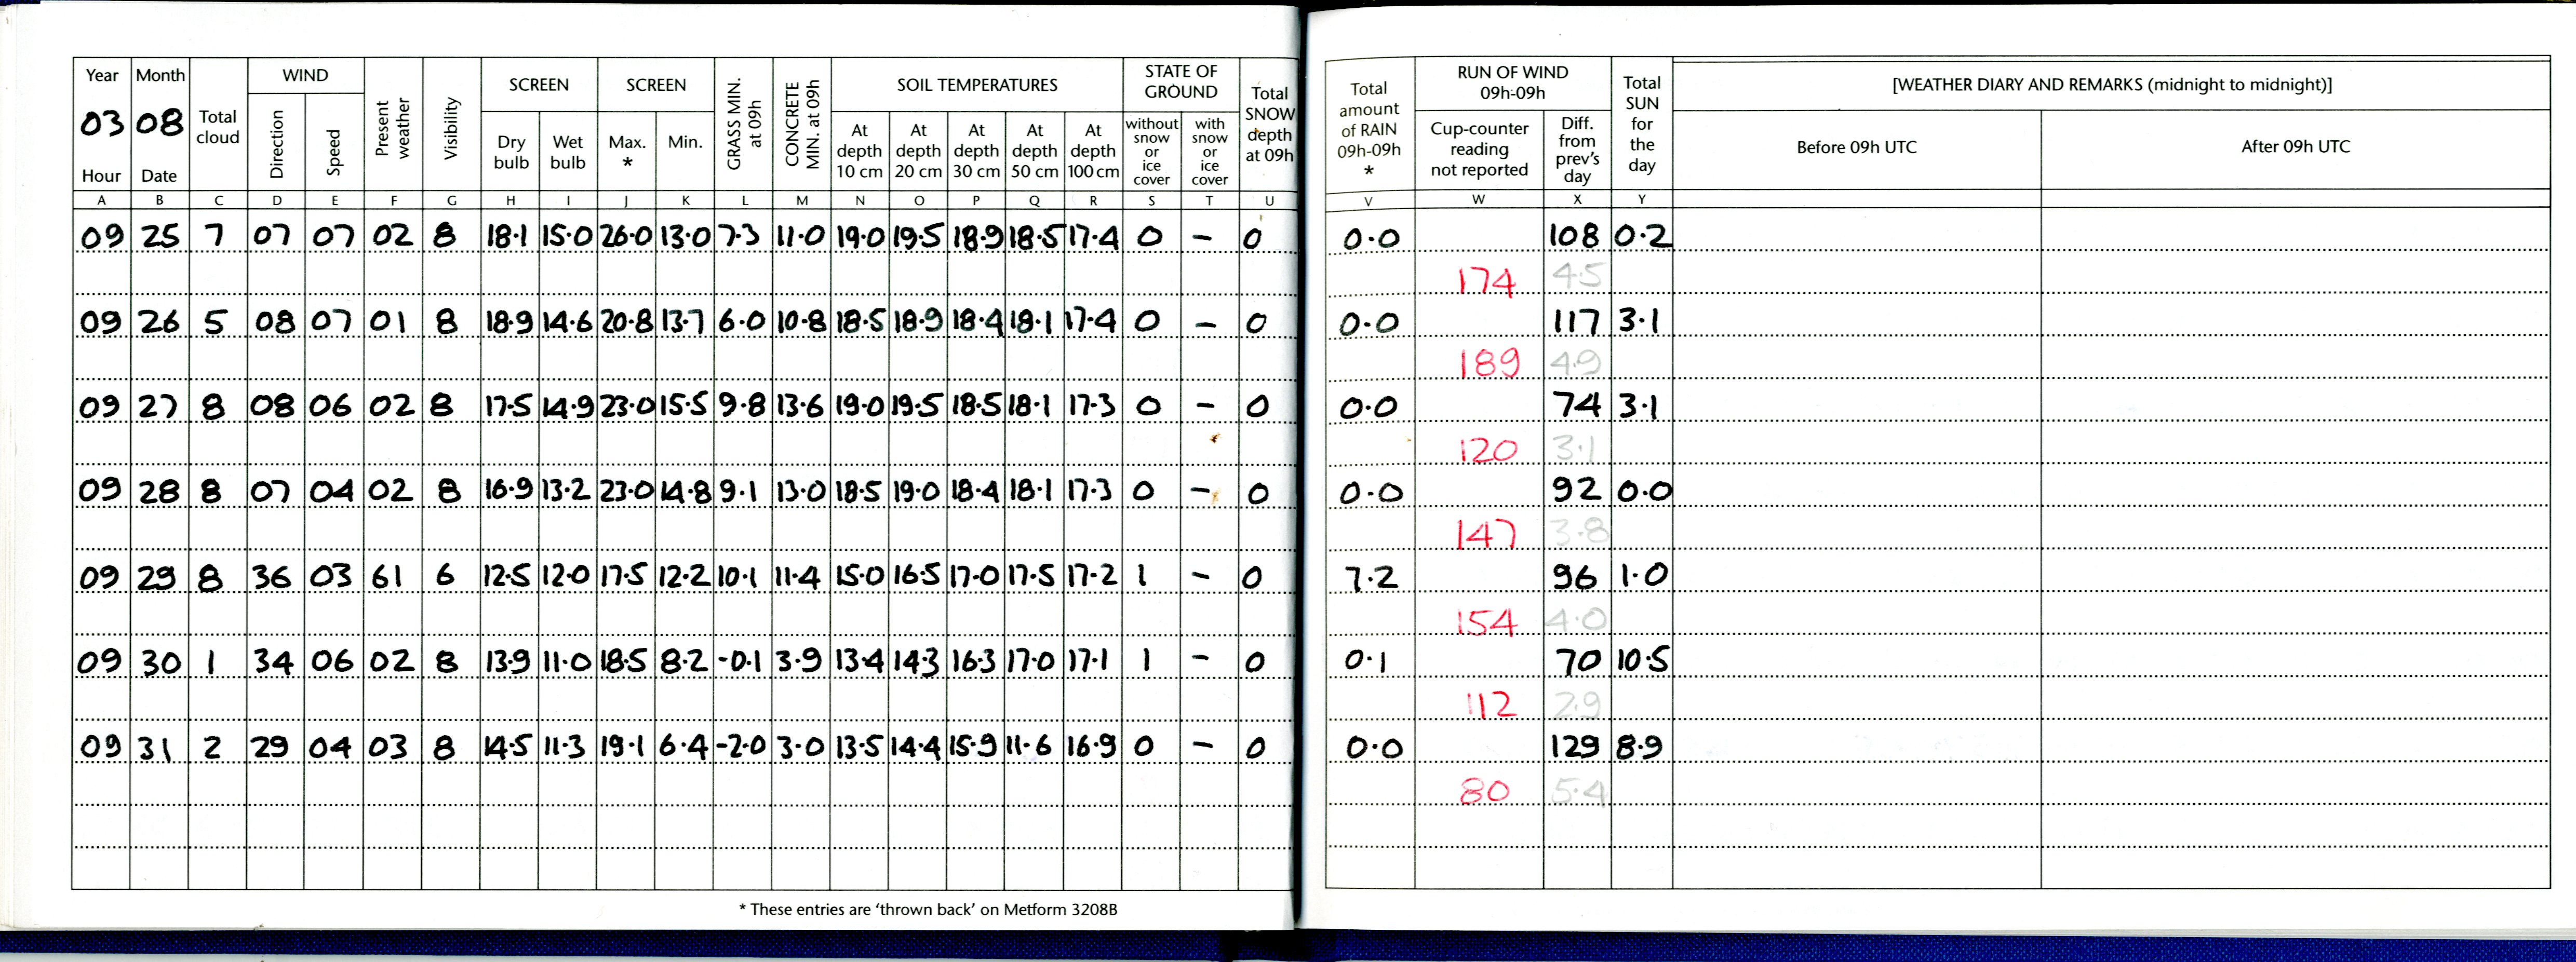 Year Month Total cloud WIND Present weather Visibility SCREEN SCREEN GRASS MIN. at 09h CONCRETE MIN. at 09h SOIL TEMPERATURES STATE OF GROUND Total SNOW depth at 09h Total amount of RAIN 09h-09h * RUN OF WIND 09h-09h Total SUN for the day [WEATHER DIARY AND REMARKS (midnight to midnight)]
03 08 Direction Speed Dry bulb Wet bulb Max. * Min. At depth 10 cm At depth 20 cm At depth 30 cm At depth 50 cm At depth 100 cm without snow or ice cover with snow or ice cover Cup-counter reading not reported Diff. from prev's day Before 09h UTC After 09h UTC
Hour Date
A B C D E F G H I J K L M N O P Q R S T U V W X Y
09 25 7 07 07 02 8 18.1 15.0 26.0 13.0 7.3 11.0 19.0 19.5 18.9 18.5 17.4 0 – 0 0.0 108 0.2
174 4.5
09 26 5 08 07 01 8 18.9 14.6 20.8 13.7 6.0 10.8 18.5 18.9 18.4 18.1 17.4 0 – 0 0.0 117 3.1
189 4.9
09 27 8 08 06 02 8 17.5 14.9 23.0 15.5 9.8 13.6 19.0 19.5 18.5 18.1 17.3 0 – 0 0.0 74 3.1
120 3.1
09 28 8 07 04 02 8 16.9 13.2 23.0 14.8 9.1 13.0 18.5 19.0 18.4 18.1 17.3 0 – 0 0.0 92 0.0
147 3.8
09 29 8 36 03 61 6 12.5 12.0 17.5 12.2 10.1 11.4 15.0 16.5 17.0 17.5 17.2 1 – 0 7.2 96 1.0
154 4.0
09 30 1 34 06 02 8 13.9 11.0 18.5 8.2 -0.1 3.9 13.4 14.3 16.3 17.0 17.1 1 – 0 0.1 70 10.5
112 2.9
09 31 2 29 04 03 8 14.5 11.3 19.1 6.4 -2.0 3.0 13.5 14.4 15.9 11.6 16.9 0 – 0 0.0 129 8.9
80 5.4
* These entries are 'thrown back' on Metform 3208B